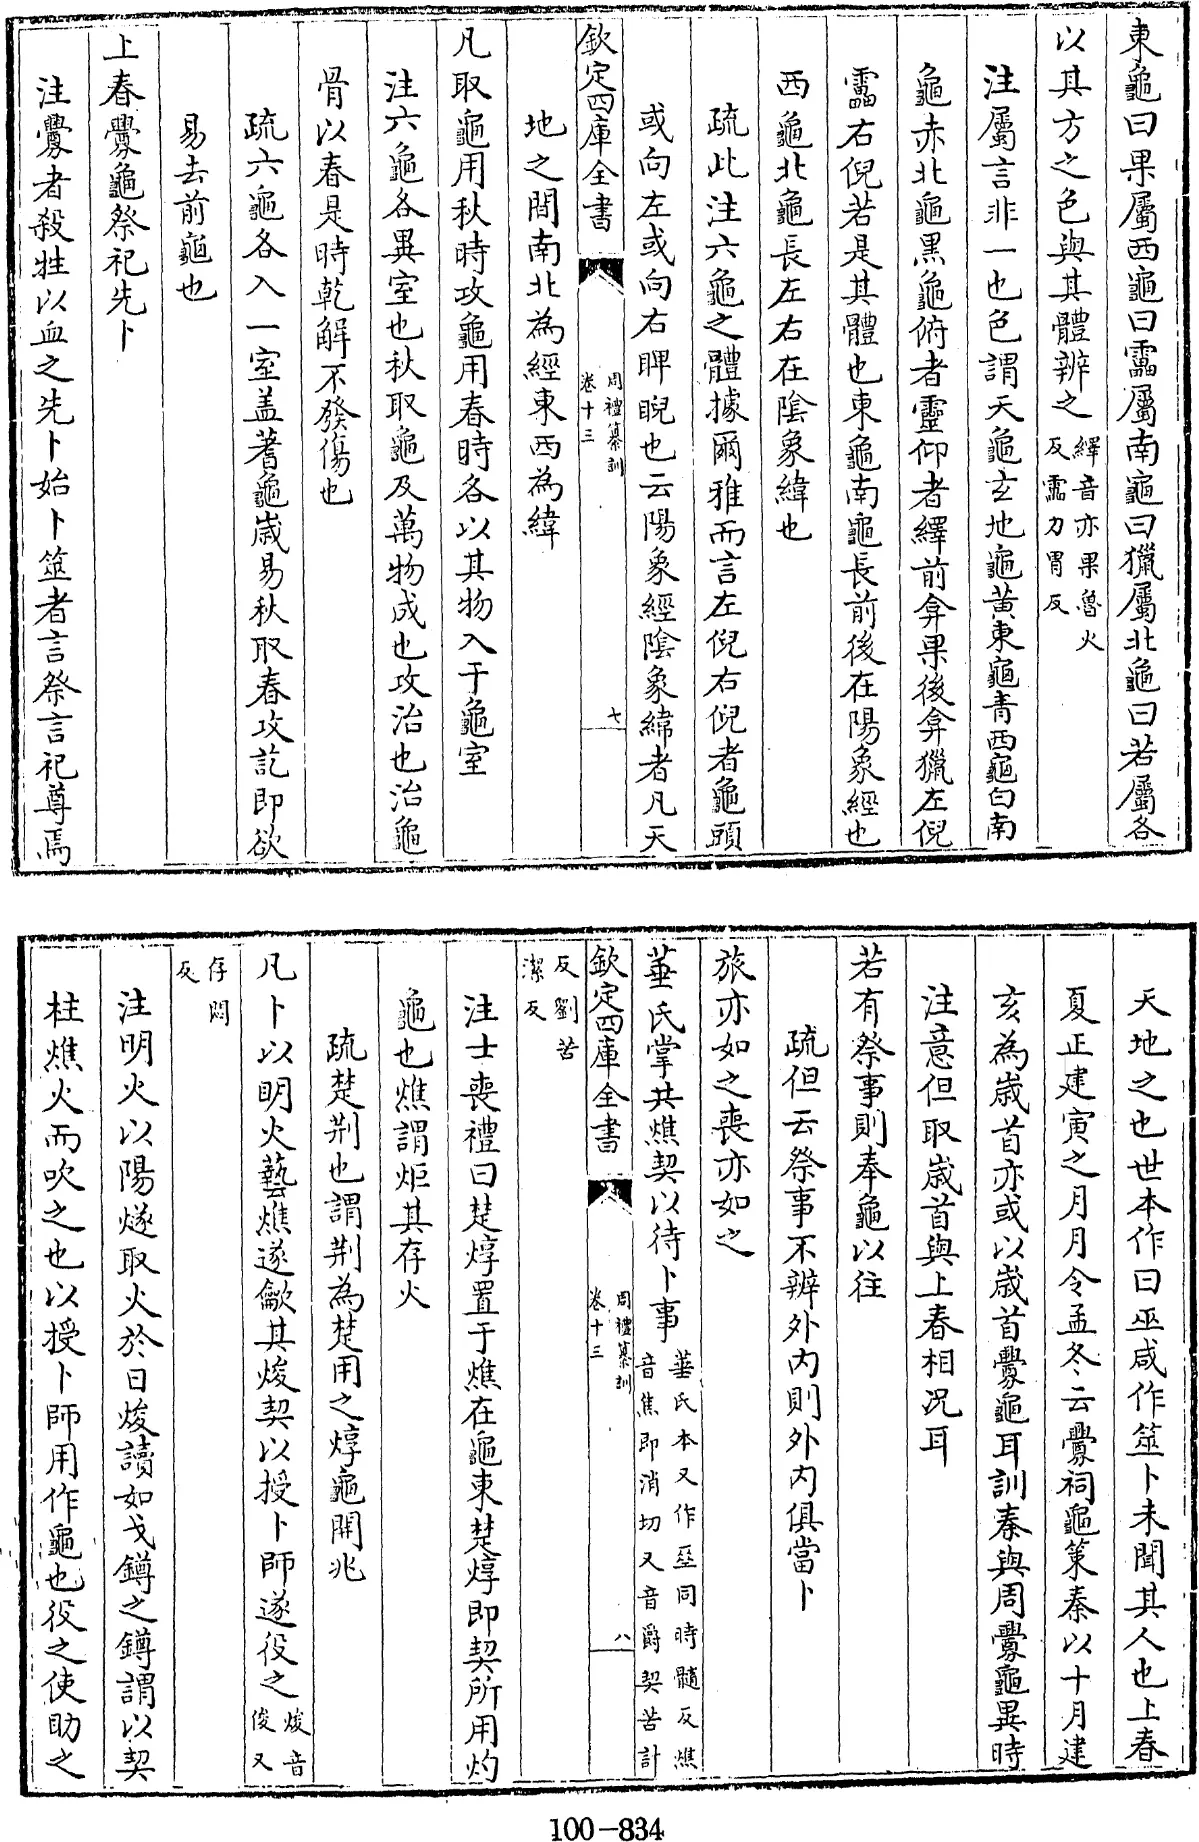 東龜曰果屬西龜曰靁屬南龜曰獵屬北龜曰若屬各
以其方之色與其體辨之繹音亦果魯火
反靁力胃反
注屬言非一也色謂天龜玄地龜黄東龜青西龜白南
龜赤北龜黑龜俯者靈仰者繹前弇果後弇獵左倪
靁右倪若是其體也東龜南龜長前後在陽象經也
西龜北龜長左右在陰象緯也
疏此注六龜之體據爾雅而言左倪右倪者龜頭
或向左或向右睥睨也云陽象經陰象緯者凡天
欽定四庫全書
周禮纂訓
卷十三
七
地之間南北為經東西為緯
凡取龜用秋時攻龜用春時各以其物入于龜室
注六龜各異室也秋取龜及萬物成也攻治也治龜
骨以春是時乾解不發傷也
疏六龜各入一室盖蓍龜歲易秋取春攻訖即欲
易去前龜也
上春釁龜祭祀先卜
注釁者殺牲以血之先卜始卜筮者言祭言祀尊焉
天地之也世本作曰巫咸作筮卜未聞其人也上春
夏正建寅之月月令孟冬云釁祠龜策秦以十月建
亥為歲首亦或以歲首釁龜耳訓秦與周釁龜異時
注意但取歲首與上春相况耳
若有祭事則奉龜以往
疏但云祭事不辨外内則外内俱當卜
旅亦如之喪亦如之
菙氏掌共燋契以待卜事菙氏本又作垂同時髓反燋
音焦即消切又音爵契苦計
欽定四庫全書
周禮纂訓
卷十三
八
反劉苦
潔反
注士喪禮曰楚焞置于燋在龜東楚焞即契所用灼
龜也燋謂炬其存火
疏楚荆也謂荆為楚用之焞龜開兆
凡卜以明火爇燋遂龡其焌契以授卜師遂役之焌音
俊又
存悶
反
注明火以陽燧取火於日焌讀如戈鐏之鐏謂以契
柱燋火而吹之也以授卜師用作龜也役之使助之
100-834